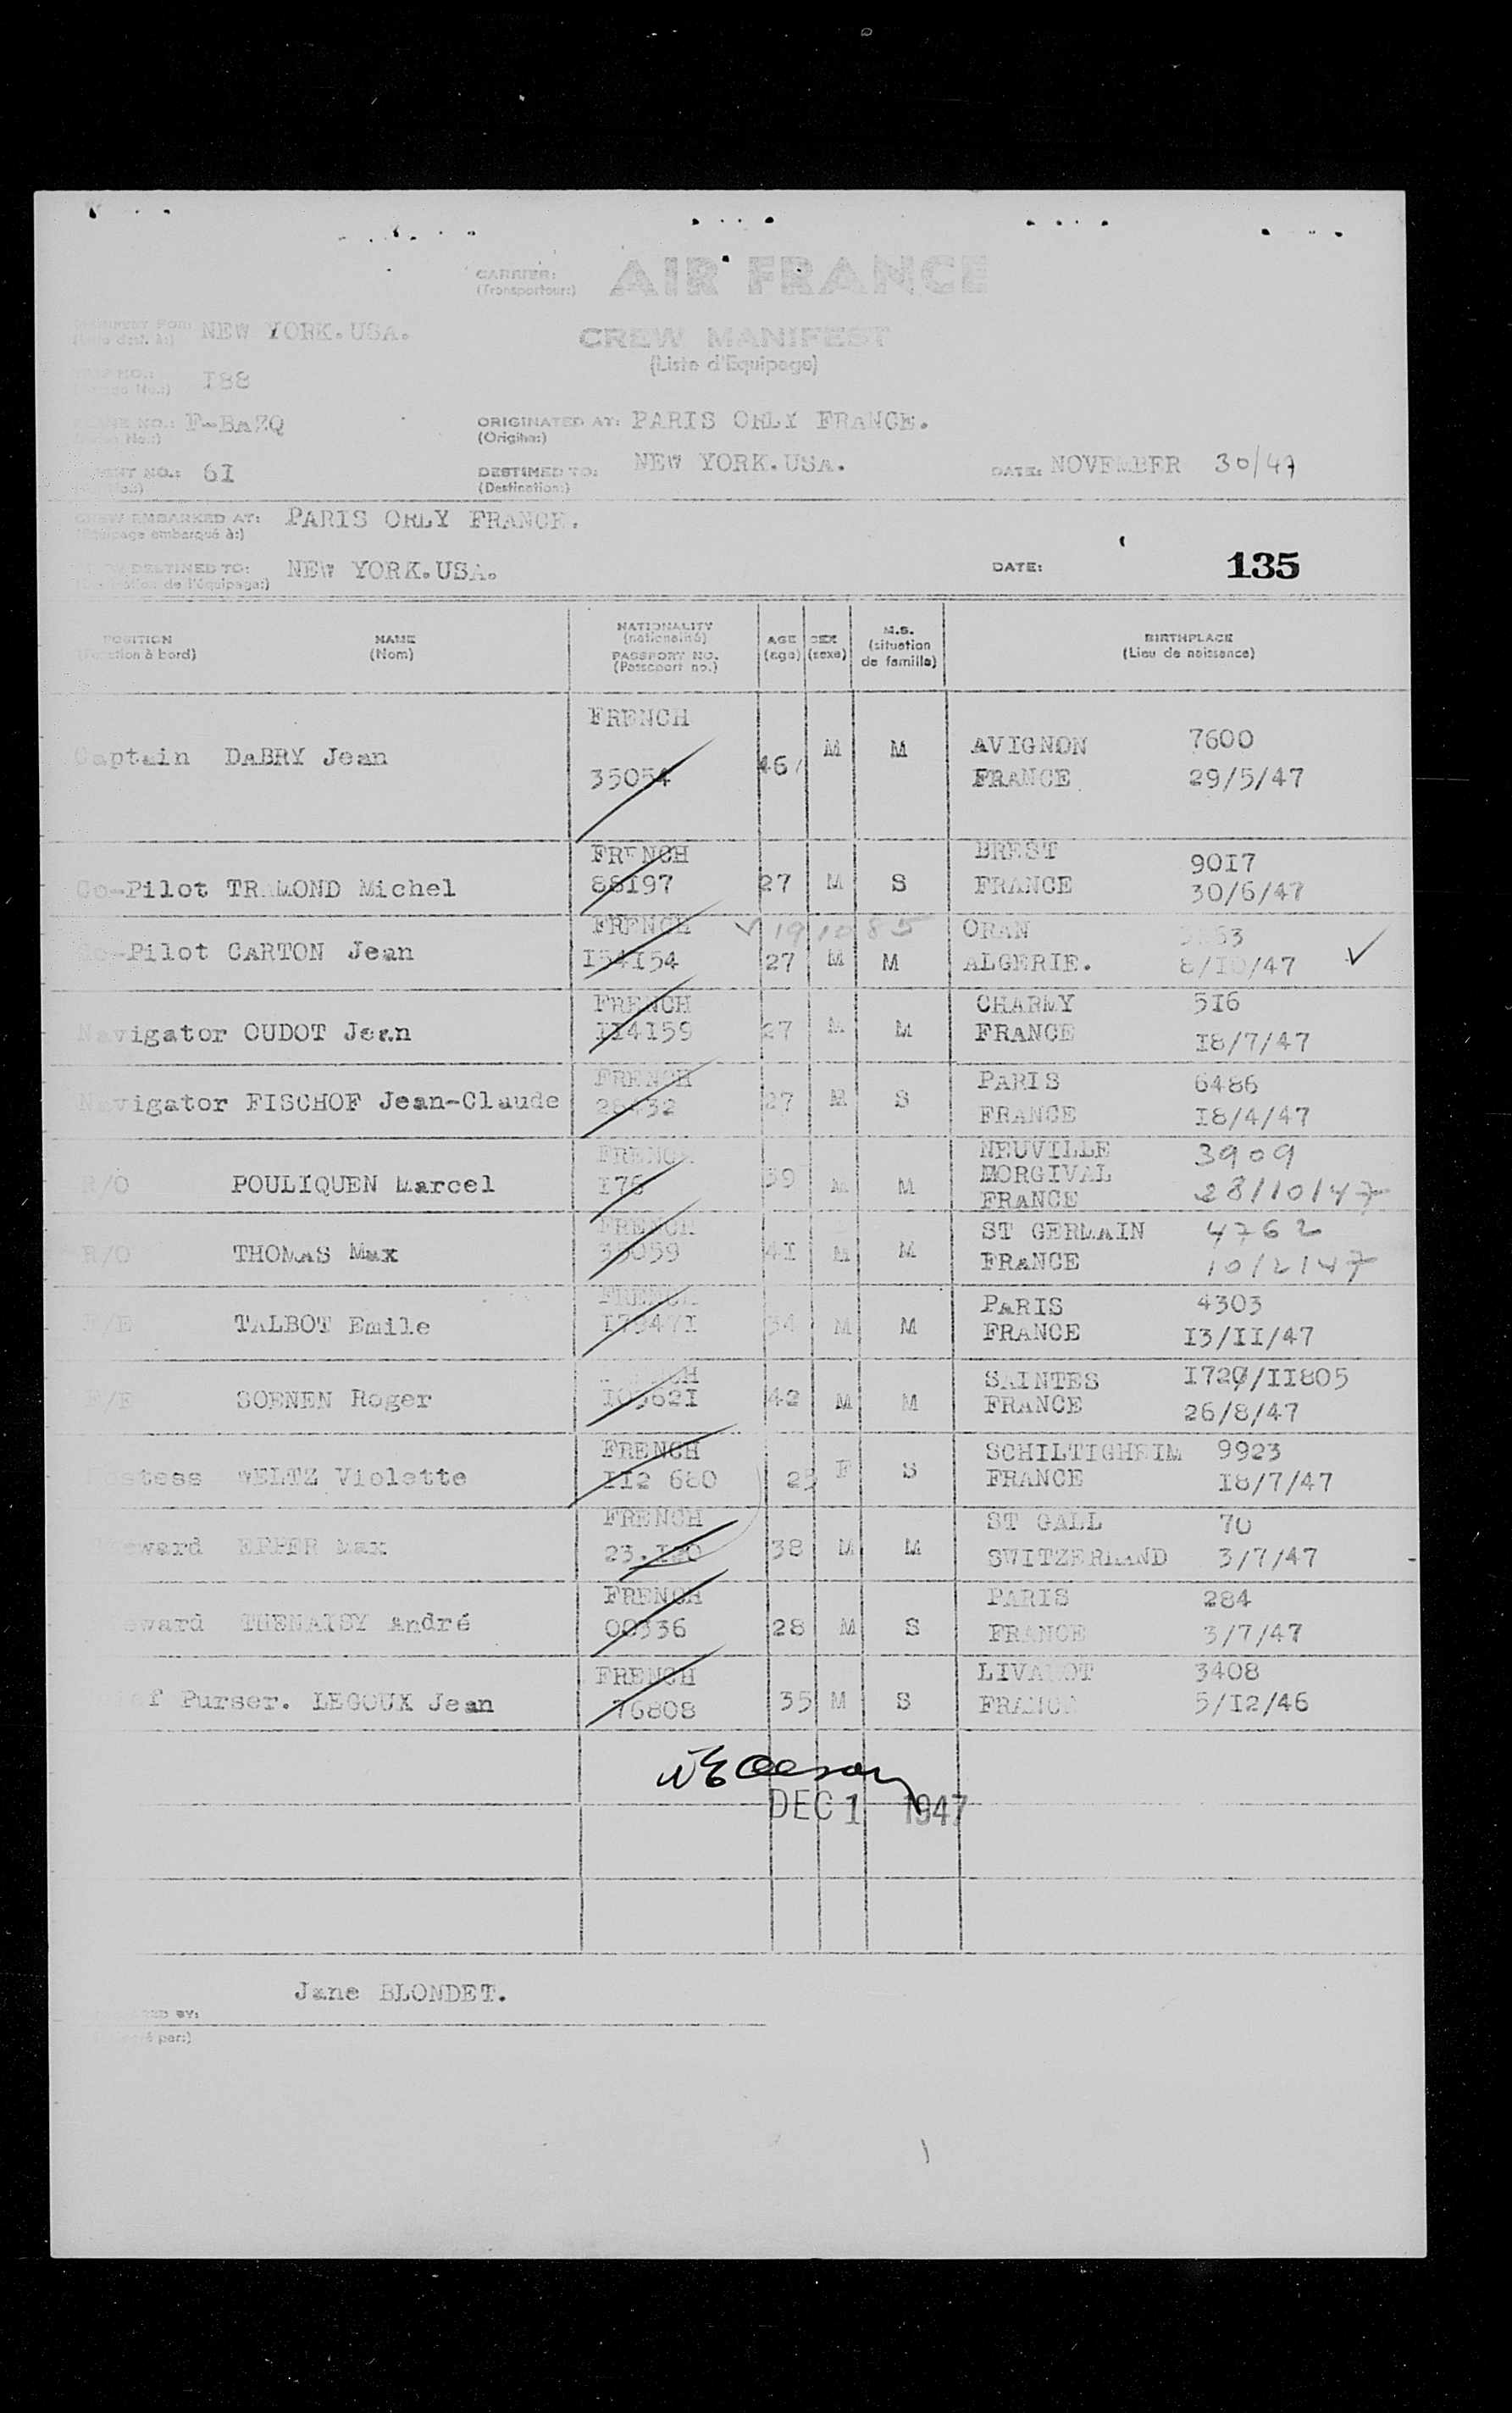 CARRIER: AIR FRANCE
(Transporteur:)
NEW YORK.USA.
CREW MANIFEST
(Liste d'Equipage)
I88
F-BAZQ
ORIGINATED AT: PARIS ORLY FRANCE.
(Origine:)
6I
DESTINED TO: NEW YORK.USA.
(Destination:)
DATE: NOVEMBER 30/47
CREW EMBARKED AT: PARIS ORLY FRANCE.
(Equipage embarqué à:)
DESTINED TO: NEW YORK.USA.
de l'équipage:)
DATE: 135
POSITION NAME NATIONALITY AGE SEX M.S. BIRTHPLACE
(Fonction à bord) (Nom) (nationalité) (age) (sexe) (situation de famille) (Lieu de naissance)
PASSPORT NO.
(Passeport no.)
FRENCH
Captain DABRY Jean 46 M M AVIGNON 7600
35054 FRANCE 29/5/47
FRENCH BREST 9OI7
Co-Pilot TRAMOND Michel 88I97 27 M S FRANCE 30/6/47
FRENCH 19 10 85 ORAN
Co-Pilot CARTON Jean I54I54 27 M M ALGERIE. 8/IO/47
FRENCH CHARMY 5I6
Navigator OUDOT Jean II4I59 27 M M FRANCE I8/7/47
FRENCH PARIS 6486
Navigator FISCHOF Jean-Claude 27 M S FRANCE I8/4/47
FRENCH NEUVILLE 3909
R/O POULIQUEN Marcel I76 39 M M MORGIVAL 28/10/47
FRANCE
FRENCH ST GERMAIN 4762
R/O THOMAS Max 35059 4I M M FRANCE 10/2/47
FRENCH PARIS 4303
TALBOT Emile 34 M M FRANCE I3/II/47
SAINTES /II805
SOENEN Roger 42 M M FRANCE 26/8/47
FRENCH SCHILTIGHEIM 9923
Hostess WELTZ Violette II2 680 25 F S FRANCE I8/7/47
FRENCH ST GALL 70
Steward Max 38 M M SWITZERLAND 3/7/47
FRENCH PARIS 284
Steward THENAISY André 00336 28 M S FRANCE 3/7/47
FRENCH LIVAROT 3408
Purser. LEGOUX Jean 76808 35 M S FRANCE 5/I2/46
DEC 1 1947
Jane BLONDET.
BY:
par:)